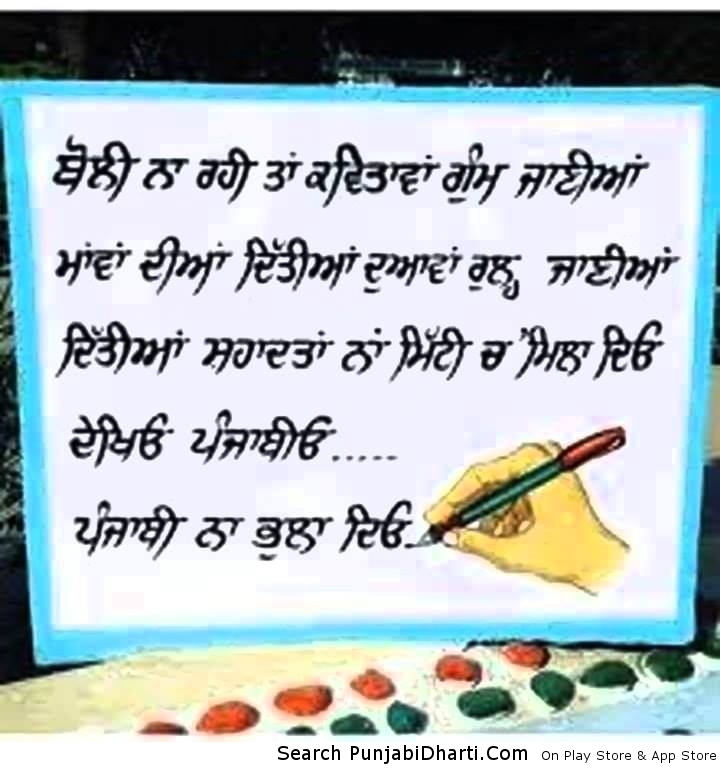 ਬੋਲੀ ਨਾ ਰਹੀ ਤਾਂ ਕਵਿਤਾਵਾਂ ਗੁੰਮ ਜਾਣੀਆਂ
ਮਾਂਵਾਂ ਦੀਆਂ ਦਿੱਤੀਆਂ ਦੁਆਵਾਂ ਰੁਲ੍ਹ ਜਾਣੀਆਂ
ਦਿੱਤੀਆਂ ਸ਼ਹਾਦਤਾਂ ਨਾਂ ਮਿੱਟੀ ਚ' ਮਿਲਾ ਦਿਓ
ਦੇਖਿਓ ਪੰਜਾਬੀਓ.....
ਪੰਜਾਬੀ ਨਾ ਭੁਲਾ ਦਿਓ..
Search PunjabiDharti.Com On Play Store & App Store